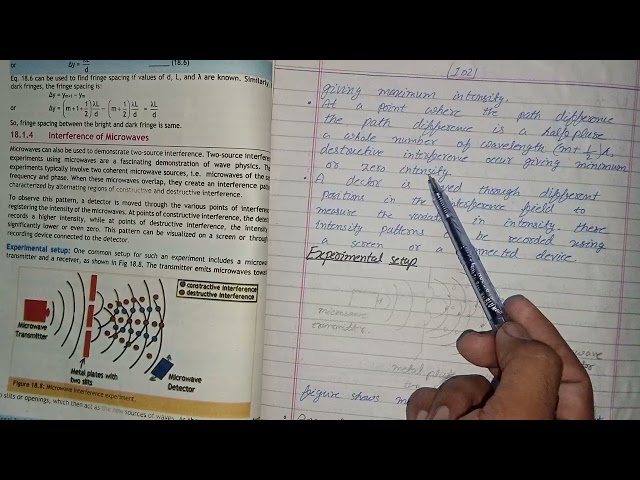 or Δy = λL/d (18.6)
Eq. 18.6 can be used to find fringe spacing if values of d, L, and λ are known. Similarly,
dark fringes, the fringe spacing is:
Δy = yₘ₊₁ − yₘ
or Δy = (m+1+1/2) λL/d − (m+1/2) λL/d = λL/d
So, fringe spacing between the bright and dark fringe is same.
18.1.4 Interference of Microwaves
Microwaves can also be used to demonstrate two-source interference. Two-source
experiments using microwaves are a fascinating demonstration of wave physics.
experiments typically involve two coherent microwave sources, i.e. microwaves of the
frequency and phase. When these microwaves overlap, they create an interference
characterized by alternating regions of constructive and destructive interference.
To observe this pattern, a detector is moved through the various points of
registering the intensity of the microwaves. At points of constructive interference, the
records a higher intensity, while at points of destructive interference, the intensity
significantly lower or even zero. This pattern can be visualized on a screen or
recording device connected to the detector.
Experimental setup: One common setup for such an experiment includes a
transmitter and a receiver, as shown in Fig 18.8. The transmitter emits microwaves
constractive interference
destructive interference
Microwave
Transmitter
Metal plates with
two slits
Microwave
Detector
Figure 18.8: Microwave interference experiment.
slits or openings, which then act as the new sources of waves.
(102)
giving maximum intensity.
At a point where the path difference
the path difference is a half pluse
a whole number of wavelength (m+1/2)λ,
destructive interference occur giving minimum
or zero intensity.
A dector is through different
positions in the interference field to
measure the in intensity. these
intensity patterns be recorded using
a screen or a device.
Experimental setup
microwave
metal
wave
figure shows